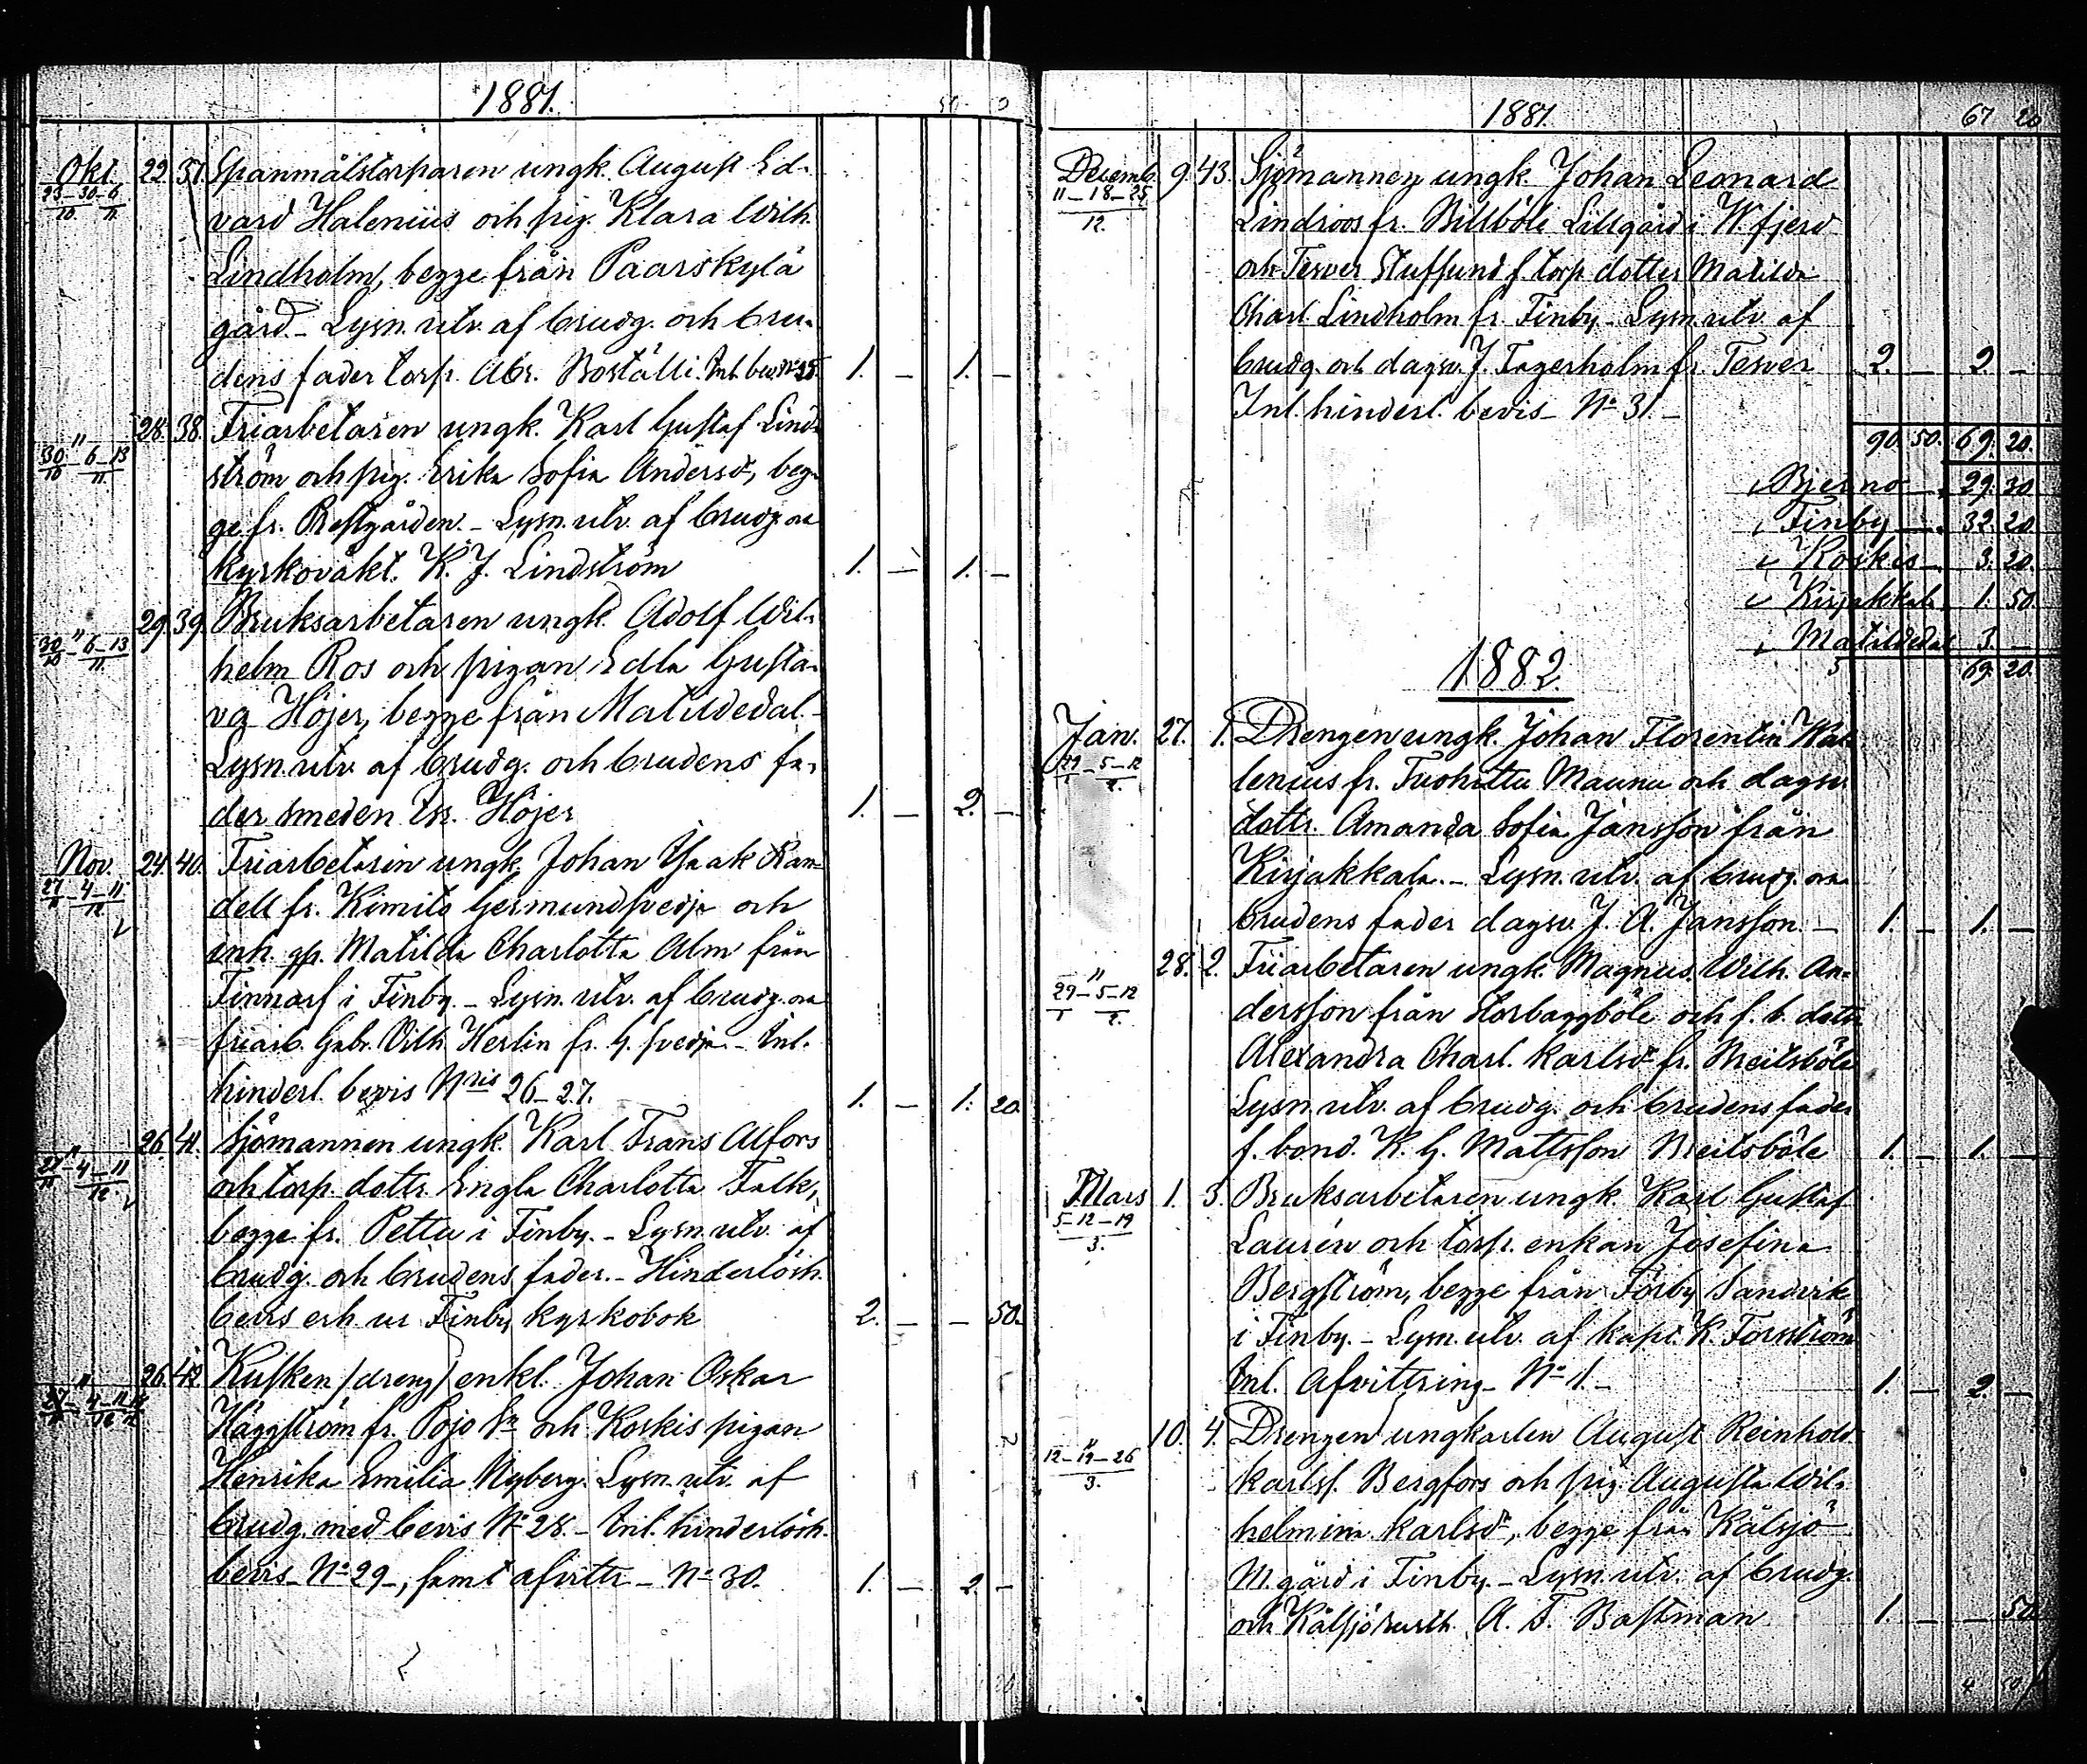 1881.
Okt. 22. 37. Spanmålstorparen ungk. August Ed-
23-30-6
10. 11.
vard Halenius och pig. Klara Wilh.
Lindholm, begge från Paarskylä
gård. - Lysn. utv. af brudg. och bru-
dens fader torp. Abr. Boställi. Inl. bev. No 25. 1. - 1. -
" 28. 38. Friarbetaren ungk. Karl Gustaf Lind-
30-6-13
10 11.
ström och pig. Erika Sofia Andersd., beg-
ge fr. Prestgården. - Lysn. utv. af brudg. och
kyrkovakt. K. J. Lindström 1. - 1. -
" 29. 39. Bruksarbetaren ungk. Adolf Wil-
30-6-13
10 11.
helm Ros och pigan Edla Gusta-
va Höjer, begge från Matildedal. -
Lysn. utv. af brudg. och brudens fa-
der smeden Höjer 1. - 2. -
Nov. 24. 40. Friarbetaren ungk. Johan Isaak Ran-
27-4-11
11 12
dell fr. Kimito Germundsvedja och
inh. Matilda Charlotta Alm från
Finnarf i Finby. - Lysn. utv. af brudg. och
friarb. Gabr. Wilh. Herlin fr. G. svedja - Inl.
hinderl. bevis Nris 26-27. 1. - 1. 20.
" 26. 41. Sjömannen ungk. Karl Frans Alfors
27-4-11
11 12.
och torp. dottr. Engla Charlotta Falk,
begge fr. Pettu i Finby. - Lysn. utv. af
brudg. och brudens fader. - Hinderlösh.
bevis erh. ur Finby kyrkobok 2. - - 50.
" 26. 42. Kusken (dreng) enkl. Johan Oskar
Häggström fr. Pojo Sn och Koskis pigan
Henrika Emilia Nyberg. Lysn. utv. af
brudg. med bevis No 28. - Inl. hinderlösh.
bevis - No 29 -, samt afvittr. - No 30. 1. - 2. -
1881. 67 20
Decemb. 9. 43. Sjömannen ungk. Johan Leonard
11-18-25
12.
Lindroos fr. Billböle Lillgård i W. fjerd
och Tesver Stussund f. torp. dotter Matilda
Charl. Lindholm fr. Finby. - Lysn. utv. af
brudg. och dagsv. J. Fagerholm fr. Tesver 2. - 2. -
Inl. hinderl. bevis - No 31. -
90. 50. 69. 20.
Bjerno 29. 30
Finby 32. 20.
Koskis 3. 20.
Kirjakkala 1. 50.
Matildedal 3. -
69. 20.
1882.
Jan. 27. 1. Drengen ungk. Johan Florentin Wal-
29-5-12
1 2.
lenius fr. Tuohittu Maunu och dagsv.
dottr. Amanda Sofia Jansson från
Kirjakkala. - Lysn. utv. af brudg. och
brudens fader dagsv. J. A. Jansson. - 1. - 1. -
" 28. 2. Friarbetaren ungk. Magnus Wilh. An-
29-5-12
1 2.
dersson från Storbaggböle och f. b. dottr.
Alexandra Charl. Karlsd. fr. Breitsböle
Lysn. utv. af brudg. och brudens fader
f. bond. K. G. Mattsson Breitsböle 1. - 1. -
Mars 1. 3. Bruksarbetaren ungk. Karl Gustaf
5-12-19
3.
Laurén och torp. enkan Josefina
Bergström, begge från Förby Sandvik
i Finby. - Lysn. utv. af kapt. K. Forsström
Inl. afvittring - No 1. - 1. - 2. -
" 10. 4. Drengen ungkarlen August Reinhold
12-19-26
3.
Karlss. Bergfors och pig. Augusta Wil-
helmina Karlsd., begge från Kälsjö
N. gård i Finby. - Lysn. utv. af brudg.
och Kälsjö A. F. Bastman 1. - - 50